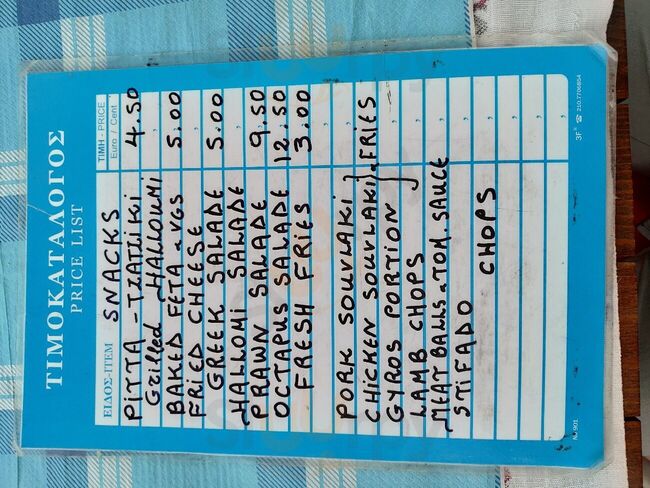 ΤΙΜΟΚΑΤΑΛΟΓΟΣ
PRICE LIST
ΕΙΔΟΣ-ITEM
ΤΙΜΗ - PRICE
Euro / Cent
SNACKS
PITTA - TZATZIKI 4.50
Grilled HALLOUMI
BAKED FETA + VGS 5.00
FRIED CHEESE
GREEK SALADE 5.00
HALLOMI SALADE
PRAWN SALADE 9.50
OCTAPUS SALADE 12.50
FRESH FRIES 3.00
PORK SOUVLAKI
CHICKEN SOUVLAKI } + FRIES
GYROS PORTION
LAMB CHOPS
MEATBALLS + TOM. SAUCE
STIFADO
CHOPS
3F 210.7706854